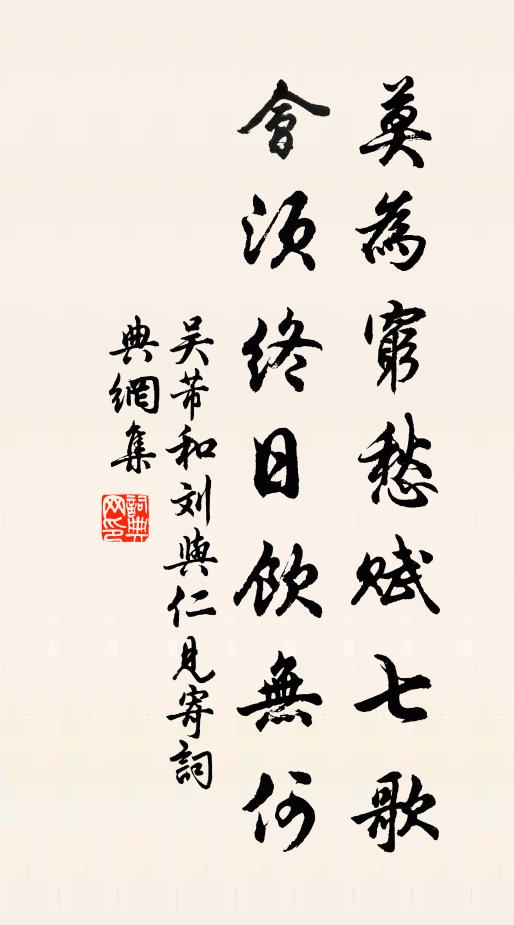 莫為窮愁賦七歌
會須終日飲無何
吴芾和刘與仁見寄詞
典網集
詞典网印